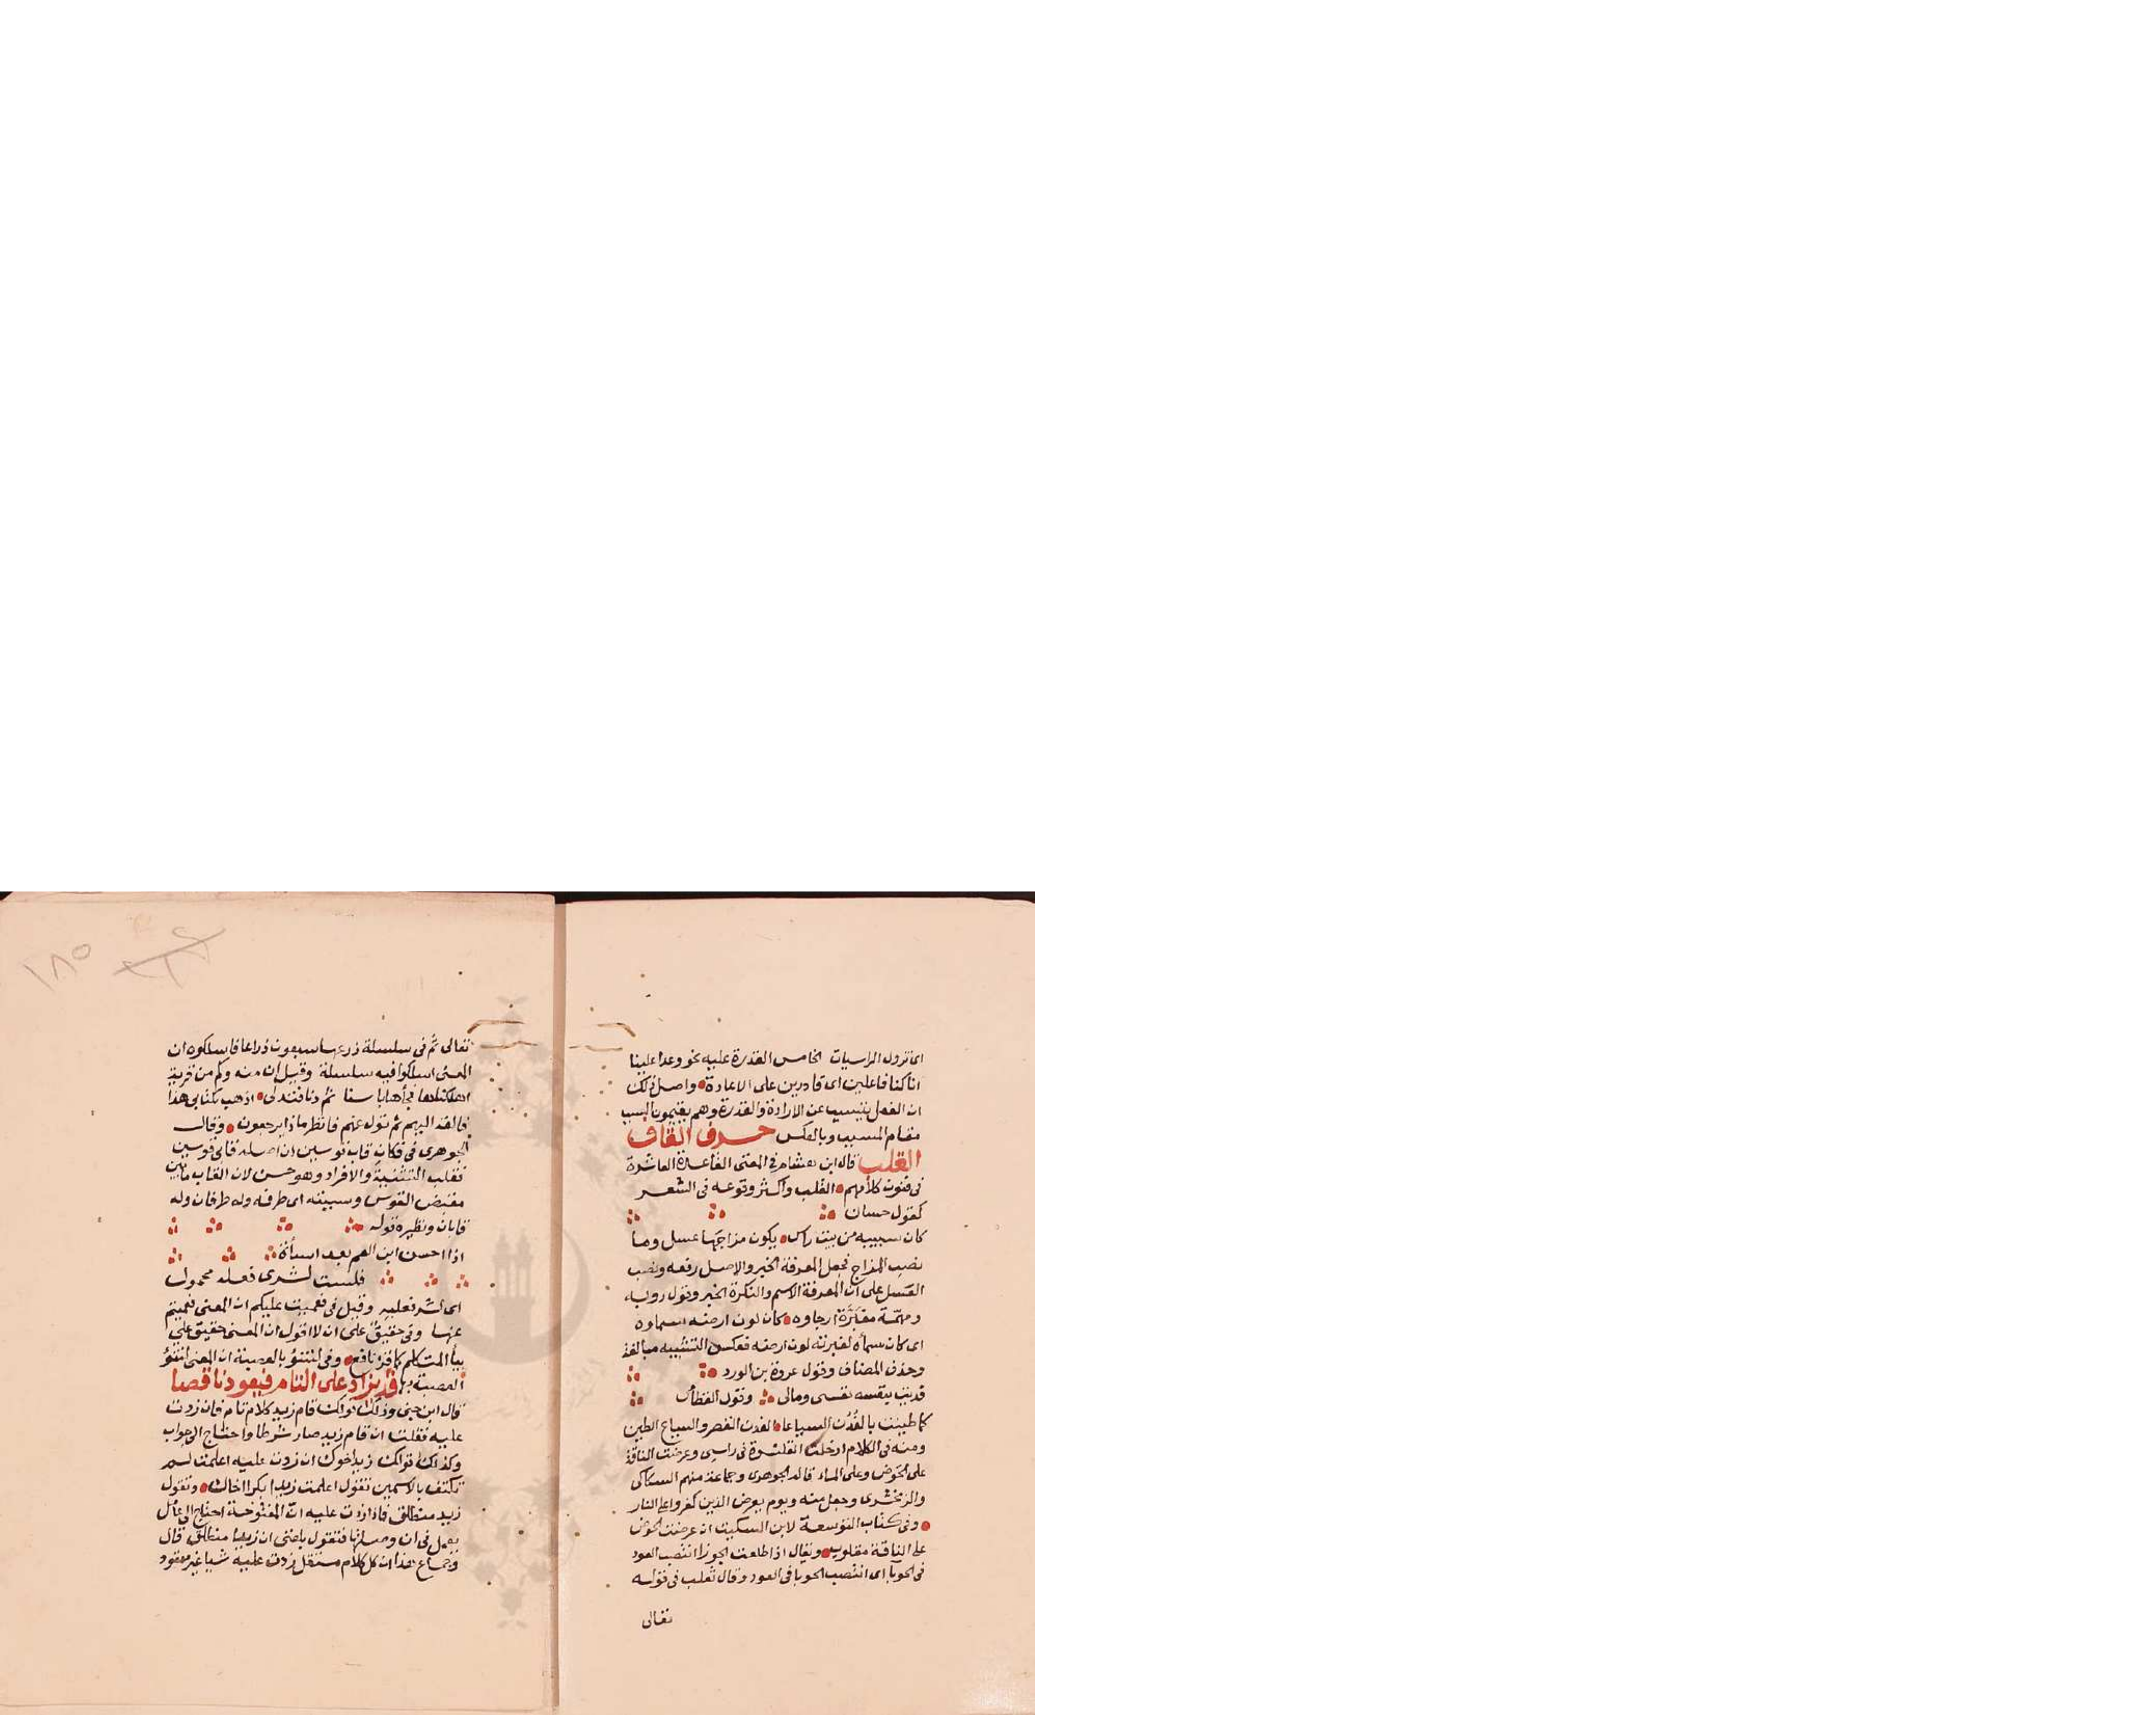 اى تزول الراسيات الخامس القدرة عليه نحو وعدا علينا
انا كنا فاعلين اى قادرين على الاعادة واصل ذلك
ان الفعل يتسبب عن الارادة والقدرة وهم يقيمون السبب
مقام المسبب وبالعكس حرف القاف
القلب قال ابن هشام فى المغنى القاعدة العاشرة
فى فنون كلامهم القلب واكثر وقوعه فى الشعر
كقول حسان
كان سبيبه من بيت راس يكون مزاجها عسل وما
نصب المزاج فجعل المعرفة الخبر والاصل رفعه ونصب
العسل على ان المعرفة الاسم والنكرة الخبر وقول روبه
ومهمة مغبرة ارجاوه كان لون ارضه سماوه
اى كان سماه لغبرته لون ارضه فعكس التشبيه مبالغة
وحذف المضاف وقول عروة بن الورد
فديت بنفسه نفسى ومالى وقول القطامى
كما طينت بالفدن السياعا الفدن القصر والسياع الطين
ومنه فى الكلام ادخلت القلنسوة فى راسى وعرضت الناقة
على الحوض وعلى الماء قاله الجوهرى وجماعة منهم السكاكى
والزمخشرى وجعل منه ويوم يعرض الذين كفروا على النار
وفى كتاب التوسعة لابن السكيت ان عرضت الحوض
على الناقة مقلوب ويقال اذا طلعت الجوزا انتصب العود
فى الحربا اى انتصب الحربا فى العود وقال ثعلب فى قوله
تعالى
تعالى ثم فى سلسلة ذرعها سبعون ذراعا فاسلكوه ان
المعنى اسلكوا فيه سلسلة وقيل ان منه وكم من قرية
اهلكناها فجأها باسنا ثم دنا فتدلى اذهب بكتابى هذا
فالقه اليهم ثم تول عنهم فانظر ماذا يرجعون وقال
الجوهرى فى فكان قاب قوسين ان اصله قابى قوس
فقلب التثنية والافراد وهو حسن لان القاب ما بين
مقبض القوس وسيته اى طرفه وله طرفان وله
قابان ونظيره قوله
اذا احسن ابن العم بعد اساة
فلست لشرى فعله بحمول
اى لشر فعليه وقيل فى فعميت عليكم ان المعنى فعميتم
عنها وفى حقيق على ان لا اقول ان المعنى حقيق على
بيا المتكلم كما قرا نافع وفى لتنوؤ بالعصبة ان المعنى لتنوؤ
العصبة بها قد يزاد على التام فيعود ناقصا
قال ابن جنى وذلك قولك قام زيد كلام تام فان زدت
عليه فقلت ان قام زيد صار شرطا واحتاج الى جواب
وكذلك قولك زيد اخوك ان زدت عليه اعلمت لم
تكتف بالاسمين تقول اعلمت زيدا بكرا اخاك وتقول
زيد منطلق فاذا زدت عليه ان المفتوحة احتاج الى عامل
يعمل فى ان وصلتها فتقول بلغنى ان زيدا منطلق قال
وجماع هذا ان كل كلام مستقل زدت عليه شيا غير معقود